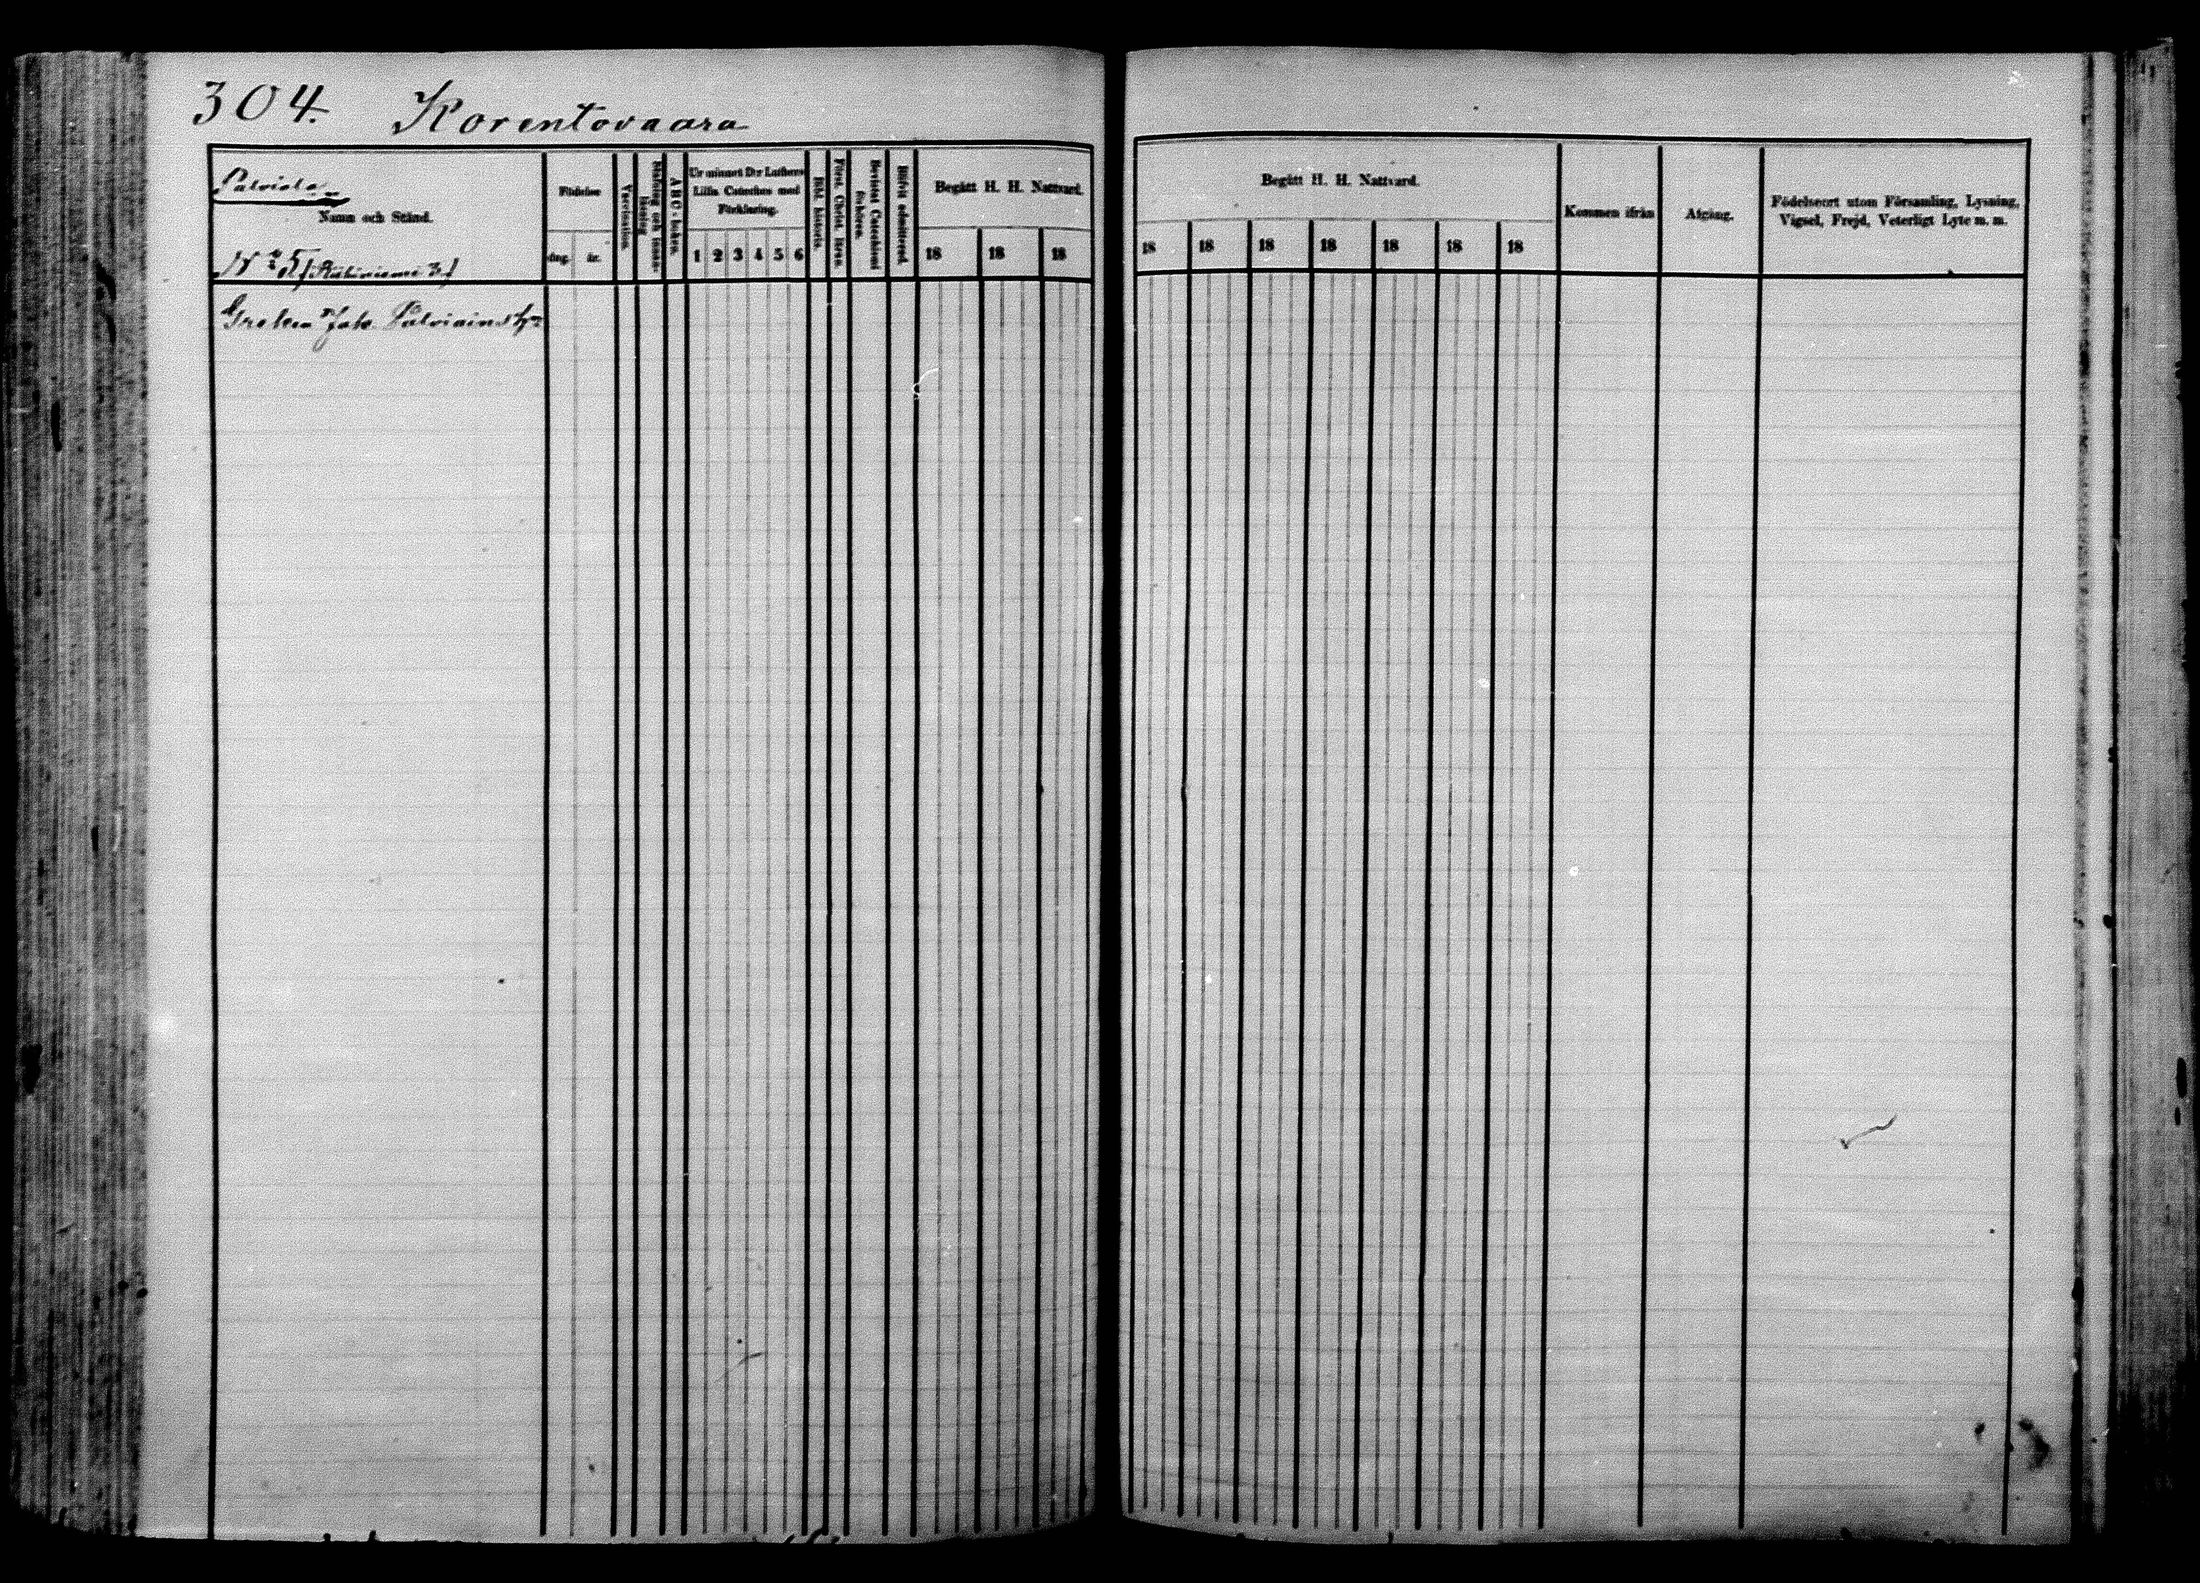 304. Korentovaara
Palviala
Namn och Stånd.
N:o 5
Greken Jak. Palviain
Födelse
dag. år.
Vaccination.
Stafning och innan-läsning
A B C-boken.
Ur minnet D:r Luthers Lilla Cateches med Förklaring.
1 2 3 4 5 6
Bibl. historia.
Först. Christ. Leran.
Bevistat Catechismi förhören.
Blifvit admitterad.
Begått H. H. Nattvard.
18 18 18
Begått H. H. Nattvard.
18 18 18 18 18 18 18
Kommen ifrån
Afgång.
Födelseort utom Församling, Lysning,
Vigsel, Frejd, Veterligt Lyte m. m.